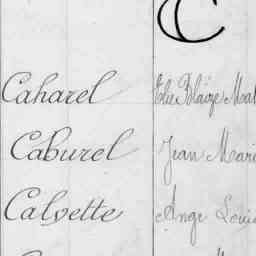 C
Caharel Elie Blaize
Caburel Jean Mari
Calvette Ange Loui